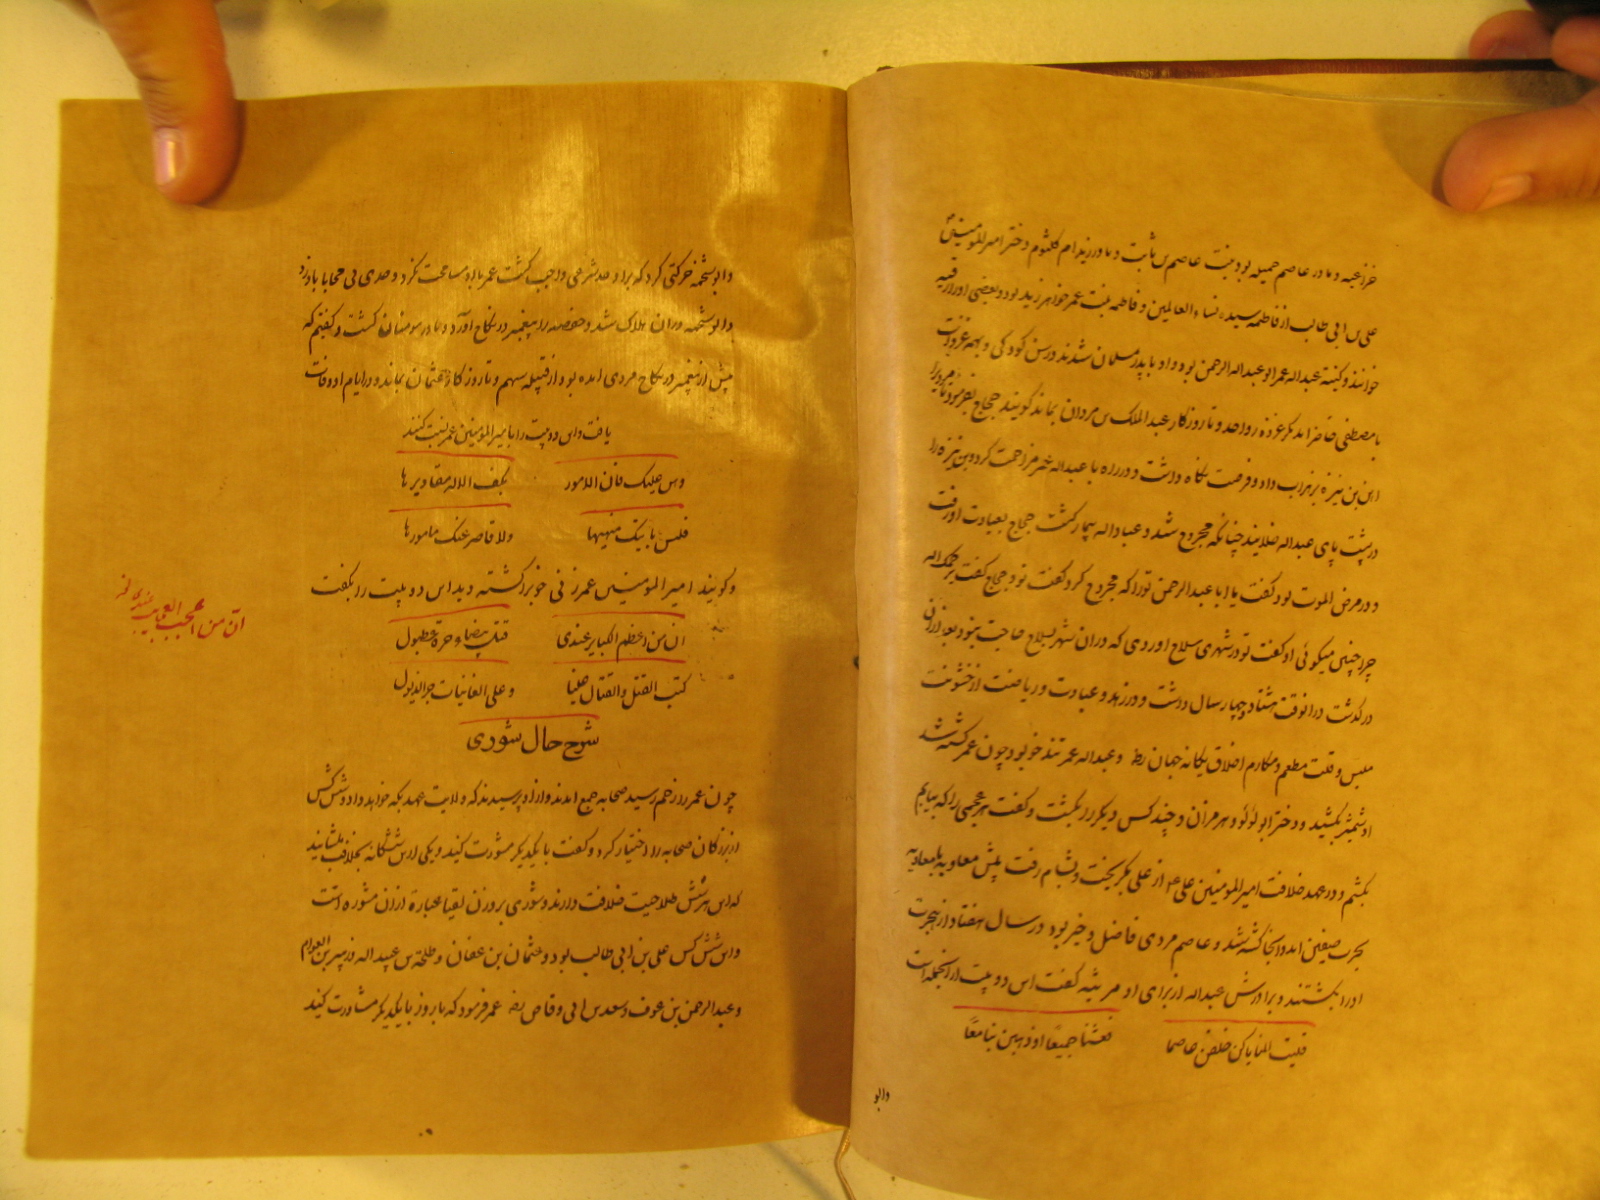 خزاعیه و مادر عاصم جمیله بود بنت عاصم بن ثابت و مادر زید ام کلثوم دختر امیر المومنین
علی بن ابی طالب از فاطمه سیده نساء العالمین و فاطمه بنت عمر خواهر زید بود و بعضی او را رقیه
خوانند و کنیه عبداله عمر ابو عبدالرحمن بود و او با پدر مسلمان شدند در سن کودکی و بهمه غزوات
با مصطفی حاضر آمد مگر غزوه و احد و تا روزگار عبد الملک بن مروان بماند گویند حجاج بفرمود تا مردیرا
بن نیزه بزهراب داد و فرصت نگاه داشت و در راه با عبداله عمر مزاحمت کرد و بن نیزه را
در پشت پای عبداله خلانید چنانکه مجروح شد و عبداله بیمار گشت حجاج بعیادت او رفت
و در مرض الموت بود گفت یا ابا عبدالرحمن ترا که مجروح کرد گفت تو حجاج گفت یرحمک اله
چرا چنین میگوئی او گفت تو در شهری سلاح اوردی که دران شهر بسلاح حاجت نبود بعد ازان
درگذشت درانوقت هشتاد و چهار سال داشت و در زهد و عبادت و ریاضت از خشونت
ملبس و قلت مطعم و مکارم اخلاق یگانه جهان رضی و عبداله عمر تندخو بود چون عمر کشته شد
او شمشیر بکشید و دختر ابو لؤلؤ و هرمزان و چند کس دیگر را بکشت و گفت هر عجمی را که بیابم
بکشم و در عهد خلافت امیر المومنین علی ع از علی بگریخت و بشام رفت پیش معاویه با معاویه
بحرب صفین امد و انجا کشته شد و عاصم مردی فاضل و خیر بود در سال هفتاد از هجرت
او را بکشتند و برادرش عبداله از برای او مرثیه گفت این دو بیت از انجمله است
فلیت المنایا کن خلفن عاصما فعشنا جمیعا او ذهبن بنا معا
وابو
وابو شحمه حرکتی کرد که براو حد شرعی واجب گشت عمر با او مسامحت نکرد و حدی بی محابا بادزد
وابو شحمه دران هلاک شد و حفصه را پیغمبر در نکاح آورد و مادر مومنان گشت و گفتیم که
پیش از پیغمبر در نکاح مردی امده بود از قبیله سهم و تا روزگار عثمان بماند و در ایام او وفات
یافت و این دو بیت را بامیر المومنین عمر نسبت کنند
وهون علیک فان الامور بکف الاله مقادیرها
فلیس باتیک منهیها ولا قاصر عنک مامورها
و گویند امیر المومنین عمر زنی خوبرا کشته دید این دو بیت را بگفت
ان من اعظم الکبایر عندی قتل بیضاء حرة عطبول
کتب القتل والقتال علینا وعلی الغانیات جر الذیول
ان من اعجب العجایب عندی
شرح حال شوری
چون عمر را زخم رسید صحابه جمع امدند و ازو پرسیدند که ولایت عهد بکه خواهد داد و شش کس
از بزرگان صحابه را اختیار کرد و گفت با یکدیگر مشورت کنید و یکی از ین ششگانه بخلافت بنشانید
که این هر شش صلاحیت خلافت دارند و شوری بر وزن لقیا عبارة ازان مشوره است
و این شش کس علی بن ابی طالب بود و عثمان بن عفان و طلحه بن عبیداله و زبیر بن العوام
و عبدالرحمن بن عوف و سعد بن ابی وقاص رضی عمر فرمود که تا روز با یکدیگر مشاورت کنید